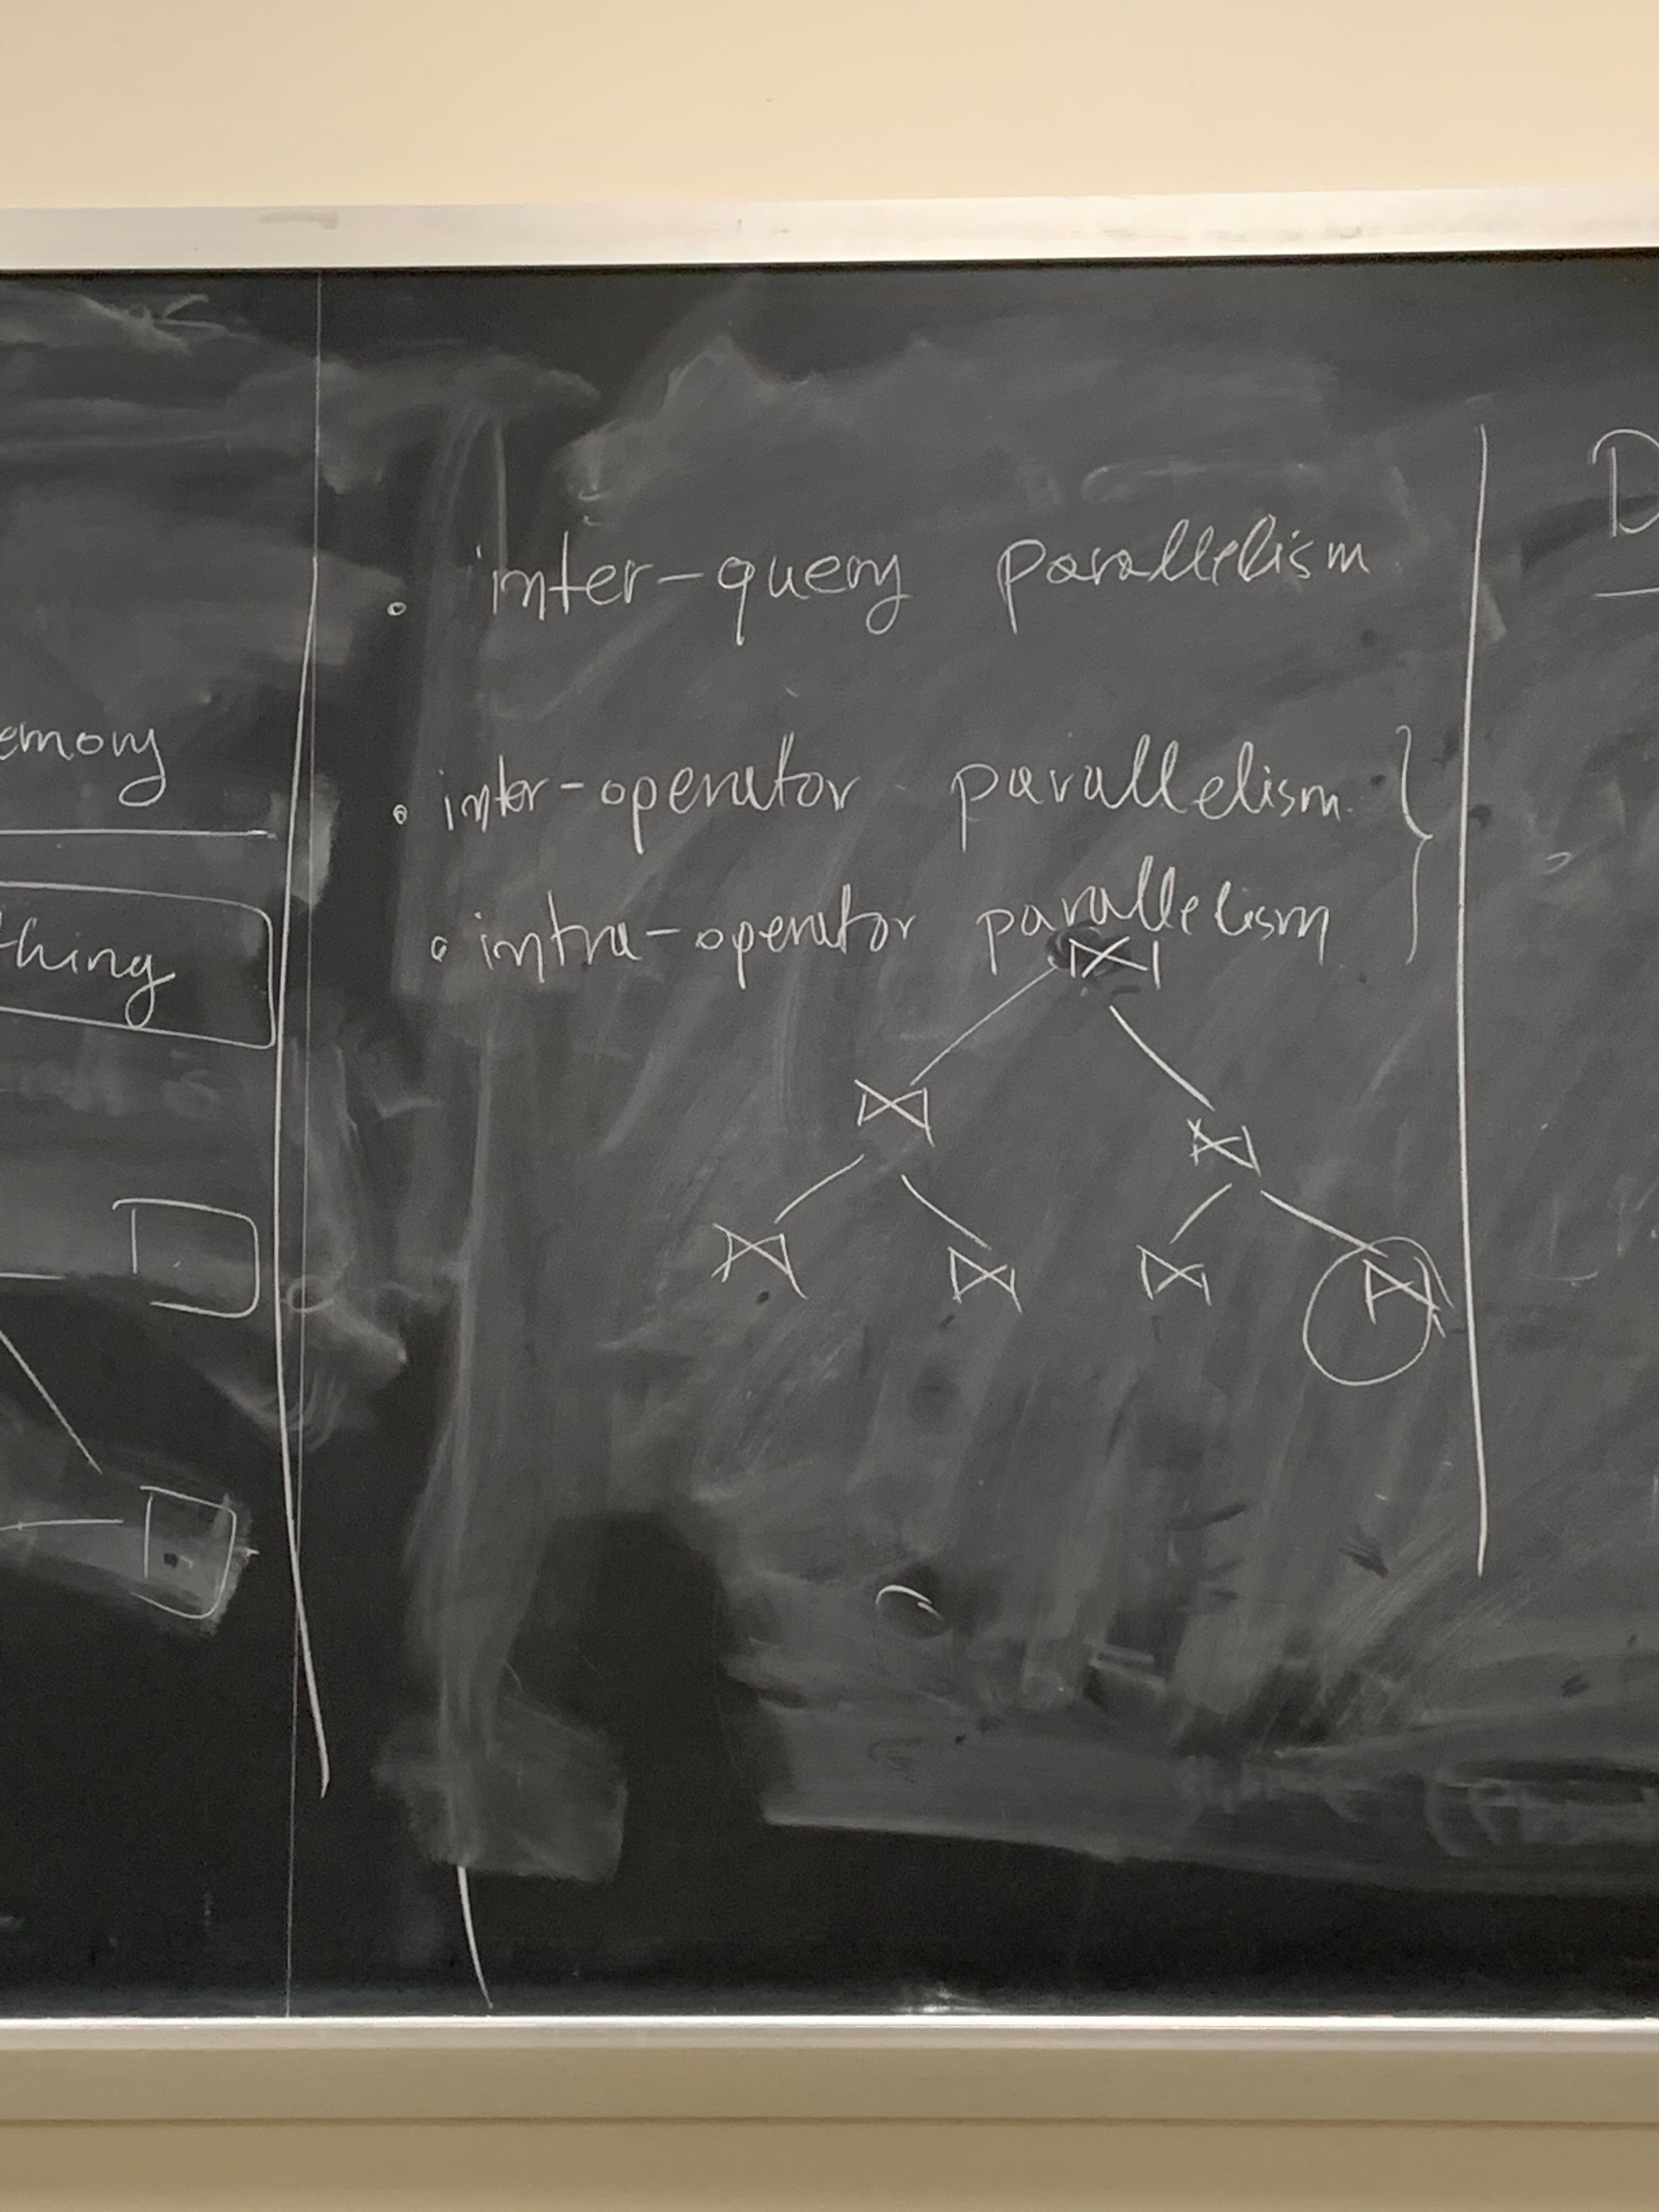 emory
thing
inter-query parallelism
inter-operator parallelism
intra-operator parallelism
⋈
⋈ ⋈
⋈ ⋈ ⋈ ⋈
D